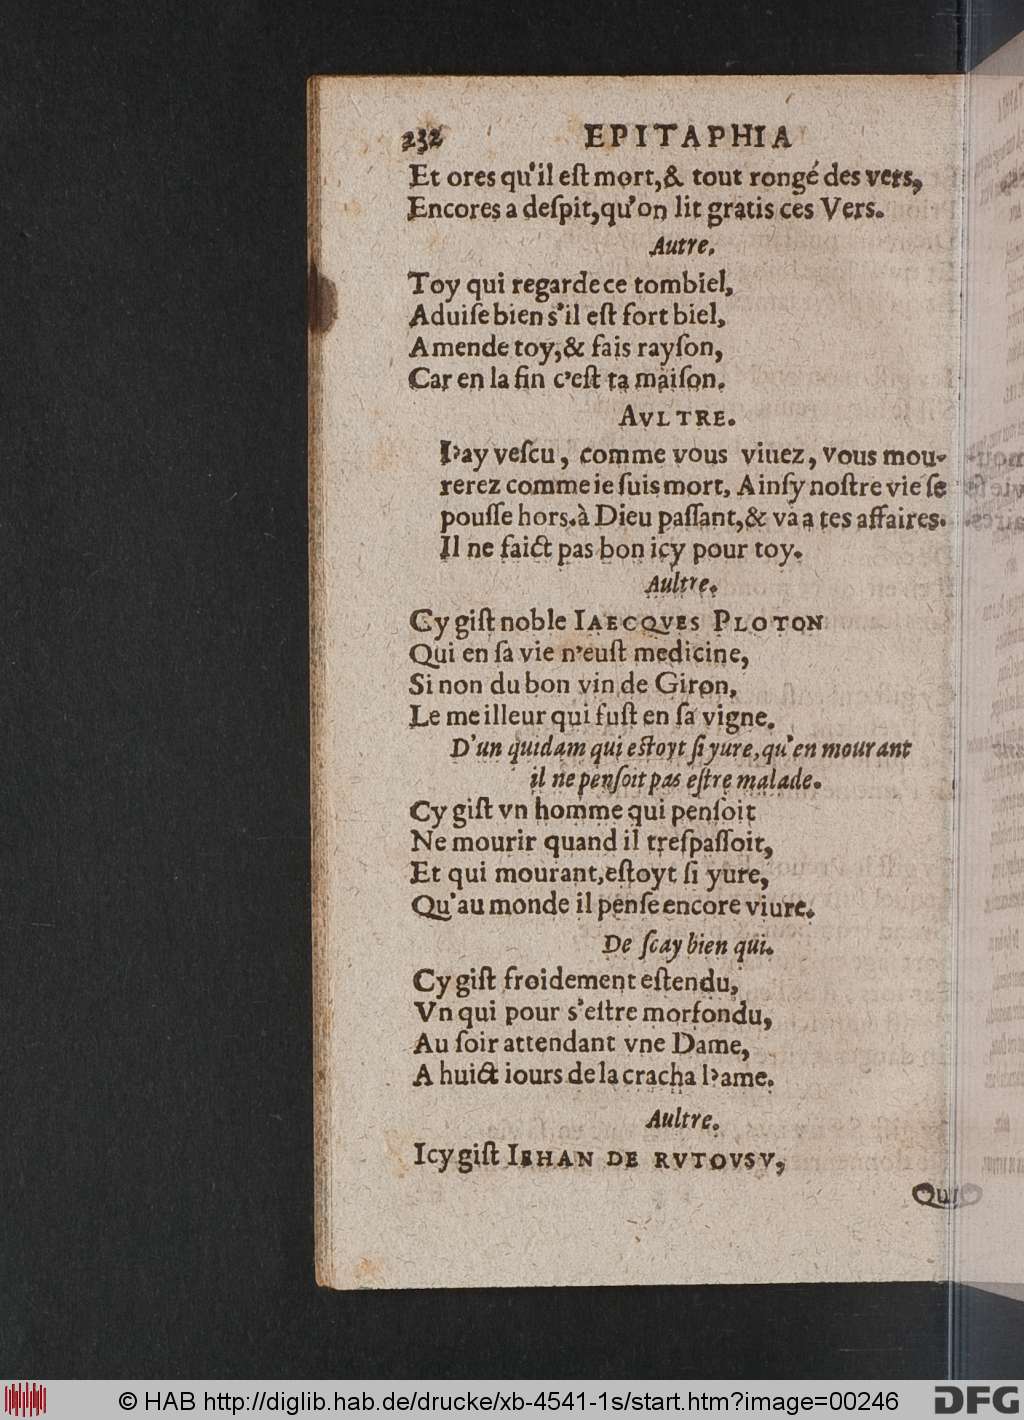 232 EPITAPHIA
Et ores qu'il eſt mort,& tout rongé des vers,
Encores a deſpit,qu'on lit gratis ces Vers.
Autre.
Toy qui regarde ce tombiel,
Aduiſe bien s'il eſt fort biel,
Amende toy,& fais rayſon,
Car en la fin c'eſt ta maiſon.
AVLTRE.
I'ay veſcu, comme vous viuez, vous mou-
rerez comme ie ſuis mort, Ainſy noſtre vie ſe
pouſſe hors.à Dieu paſſant,& va a tes affaires.
Il ne faict pas bon icy pour toy.
Aultre.
Cy giſt noble IAECQVES PLOTON
Qui en ſa vie n'euſt medicine,
Si non du bon vin de Giron,
Le meilleur qui fuſt en ſa vigne.
D'un quidam qui eſtoyt ſi yure,qu'en mourant
il ne penſoit pas eſtre malade.
Cy giſt vn homme qui penſoit
Ne mourir quand il treſpaſſoit,
Et qui mourant,eſtoyt ſi yure,
Qu'au monde il penſe encore viure.
De ſcay bien qui.
Cy giſt froidement eſtendu,
Vn qui pour s'eſtre morfondu,
Au ſoir attendant vne Dame,
A huict iours de la cracha l'ame.
Aultre.
Icy giſt IEHAN DE RVTOVSV,
Qui
© HAB http://diglib.hab.de/drucke/xb-4541-1s/start.htm?image=00246
DFG